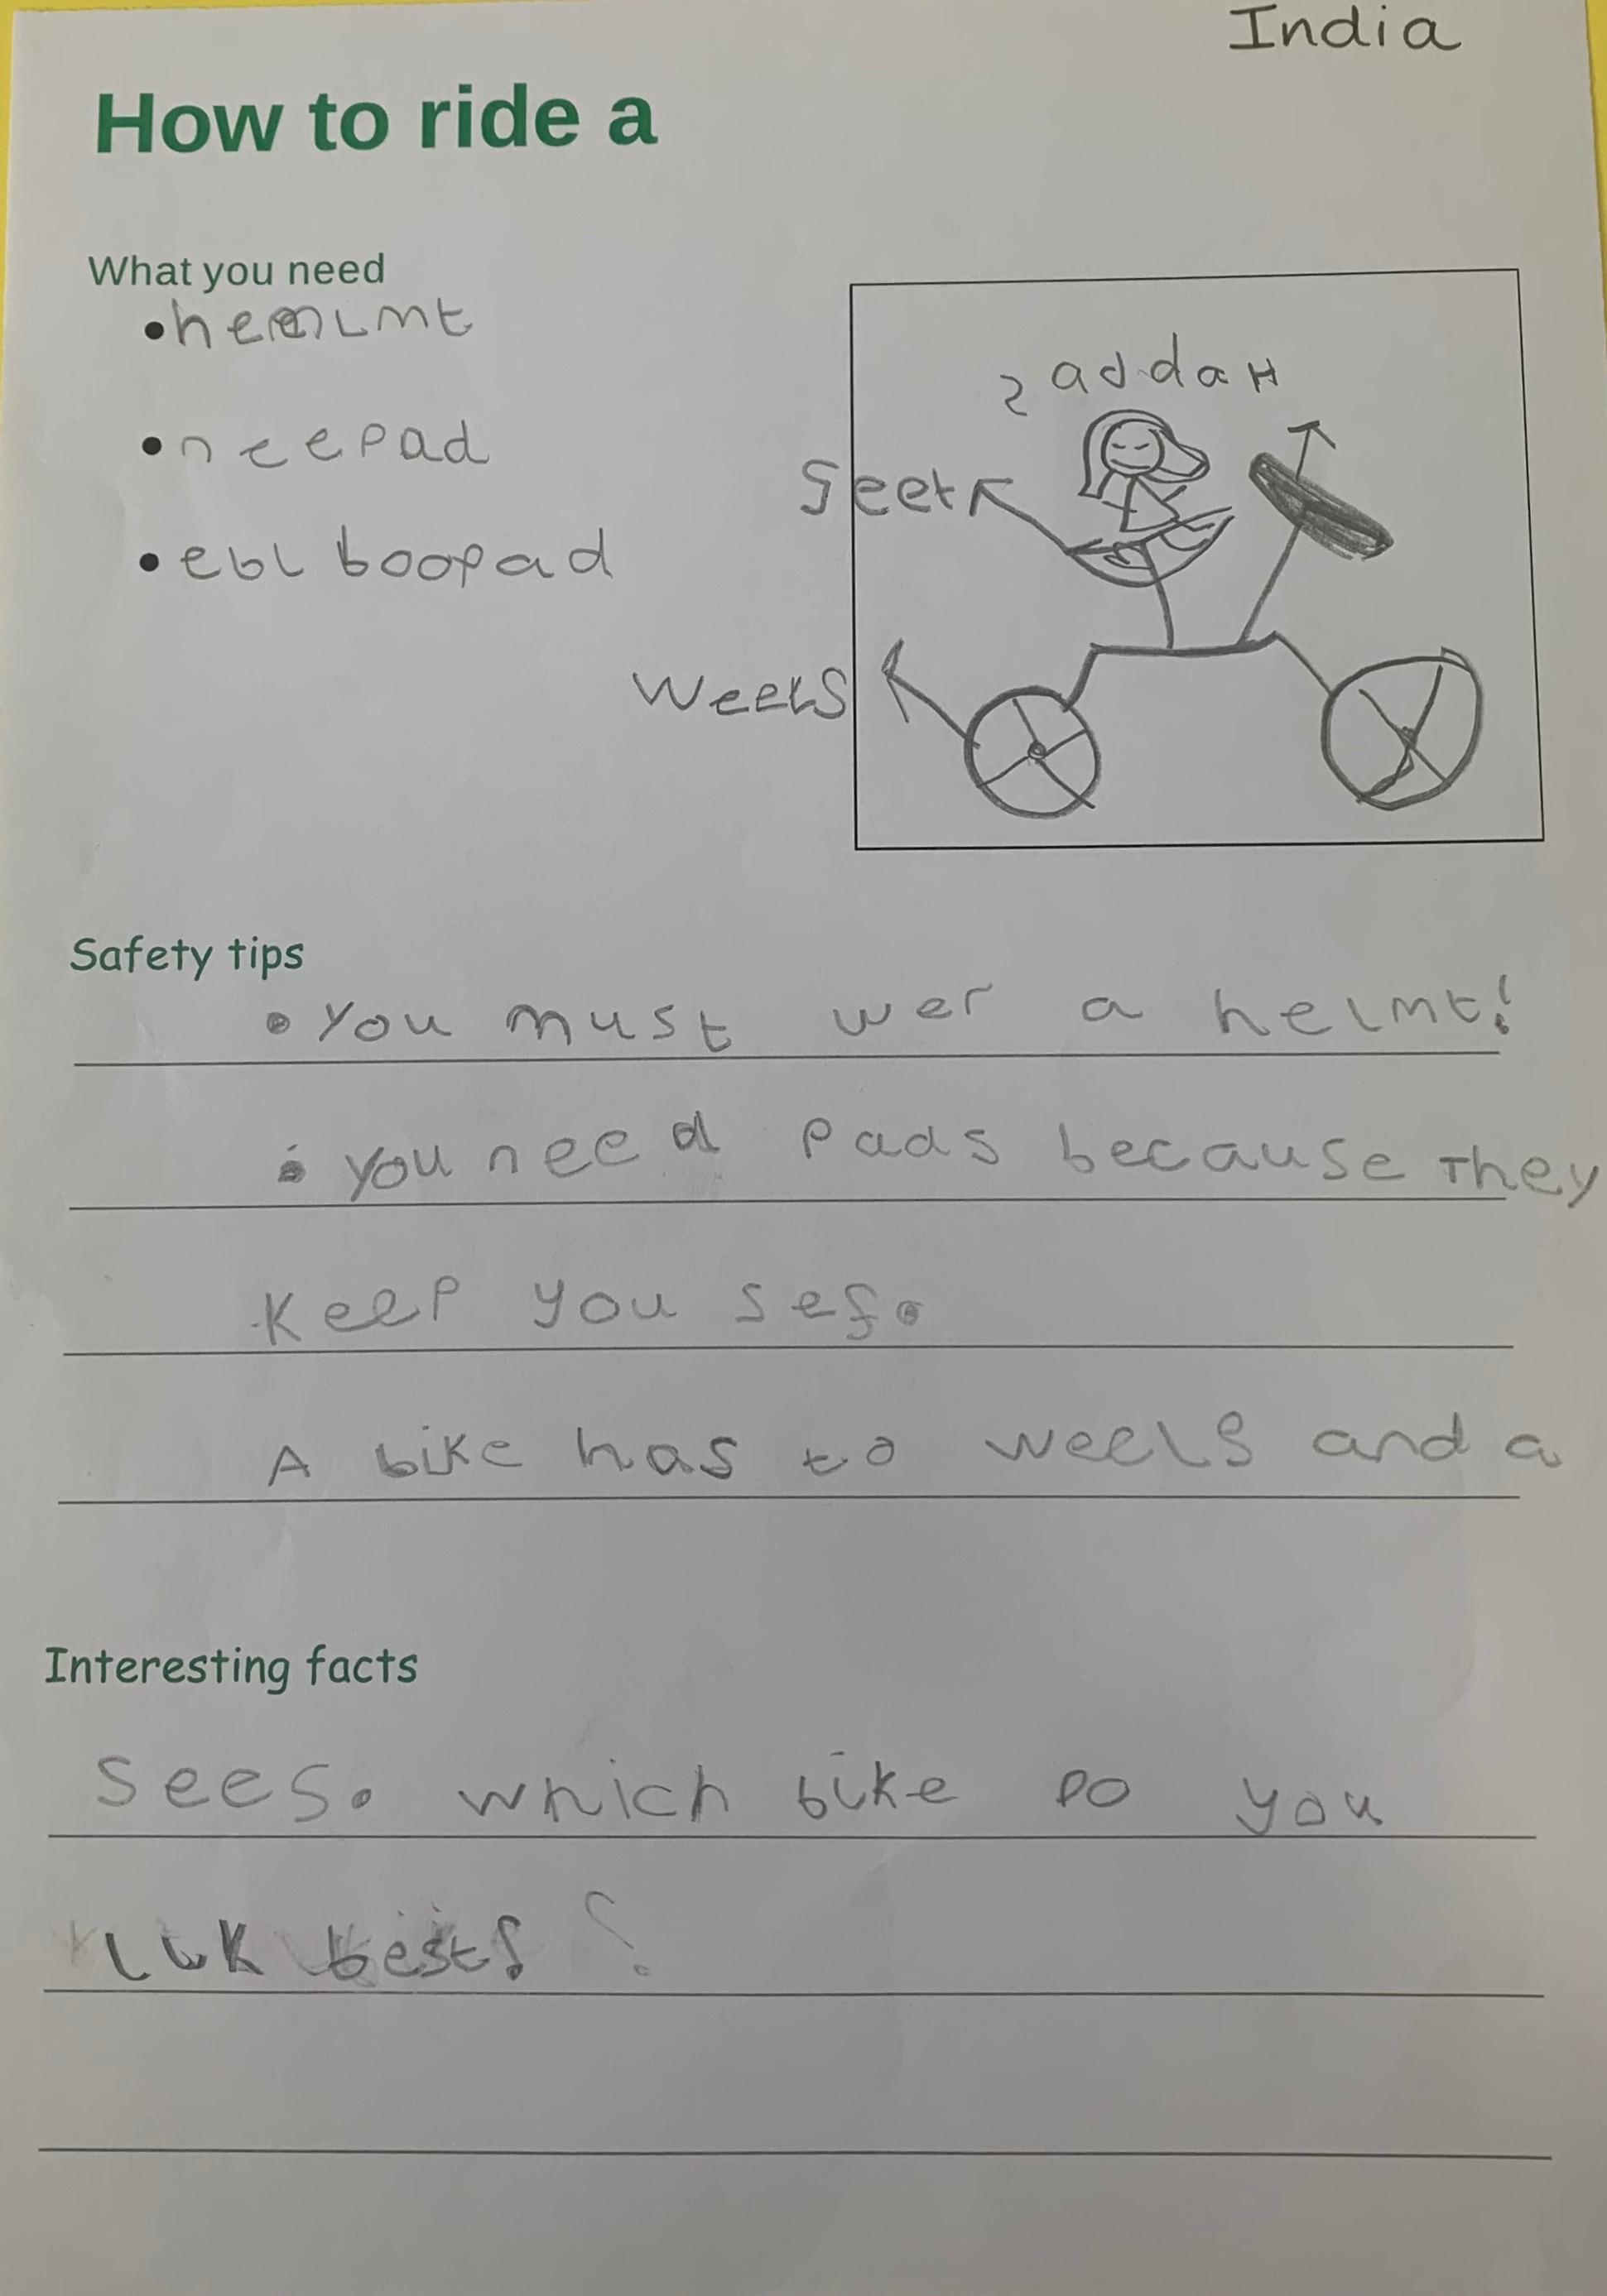 India
How to ride a
What you need
• helmt
• neepad
• ebl boopad
Seet
Weels
Safety tips
• you must wer a helmt!
• you need pads because They
keep you sef.
A bike has to weels and a
Interesting facts
sees. which bike Do you
lik best?